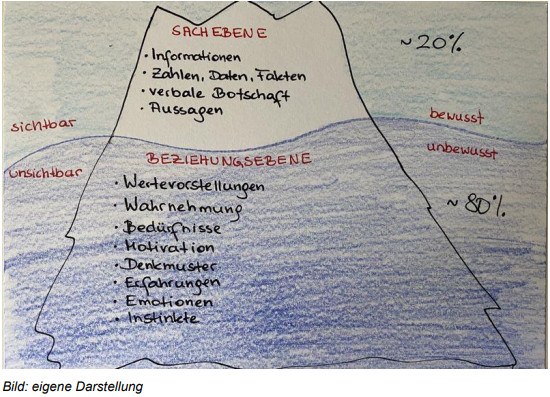 SACHEBENE
~20%
• Informationen
• Zahlen, Daten, Fakten
• verbale Botschaft
• Aussagen
sichtbar
bewusst
unsichtbar
BEZIEHUNGSEBENE
unbewusst
• Wertevorstellungen
• Wahrnehmung
• Bedürfnisse
• Motivation
• Denkmuster
• Erfahrungen
• Emotionen
• Instinkte
~80%
Bild: eigene Darstellung